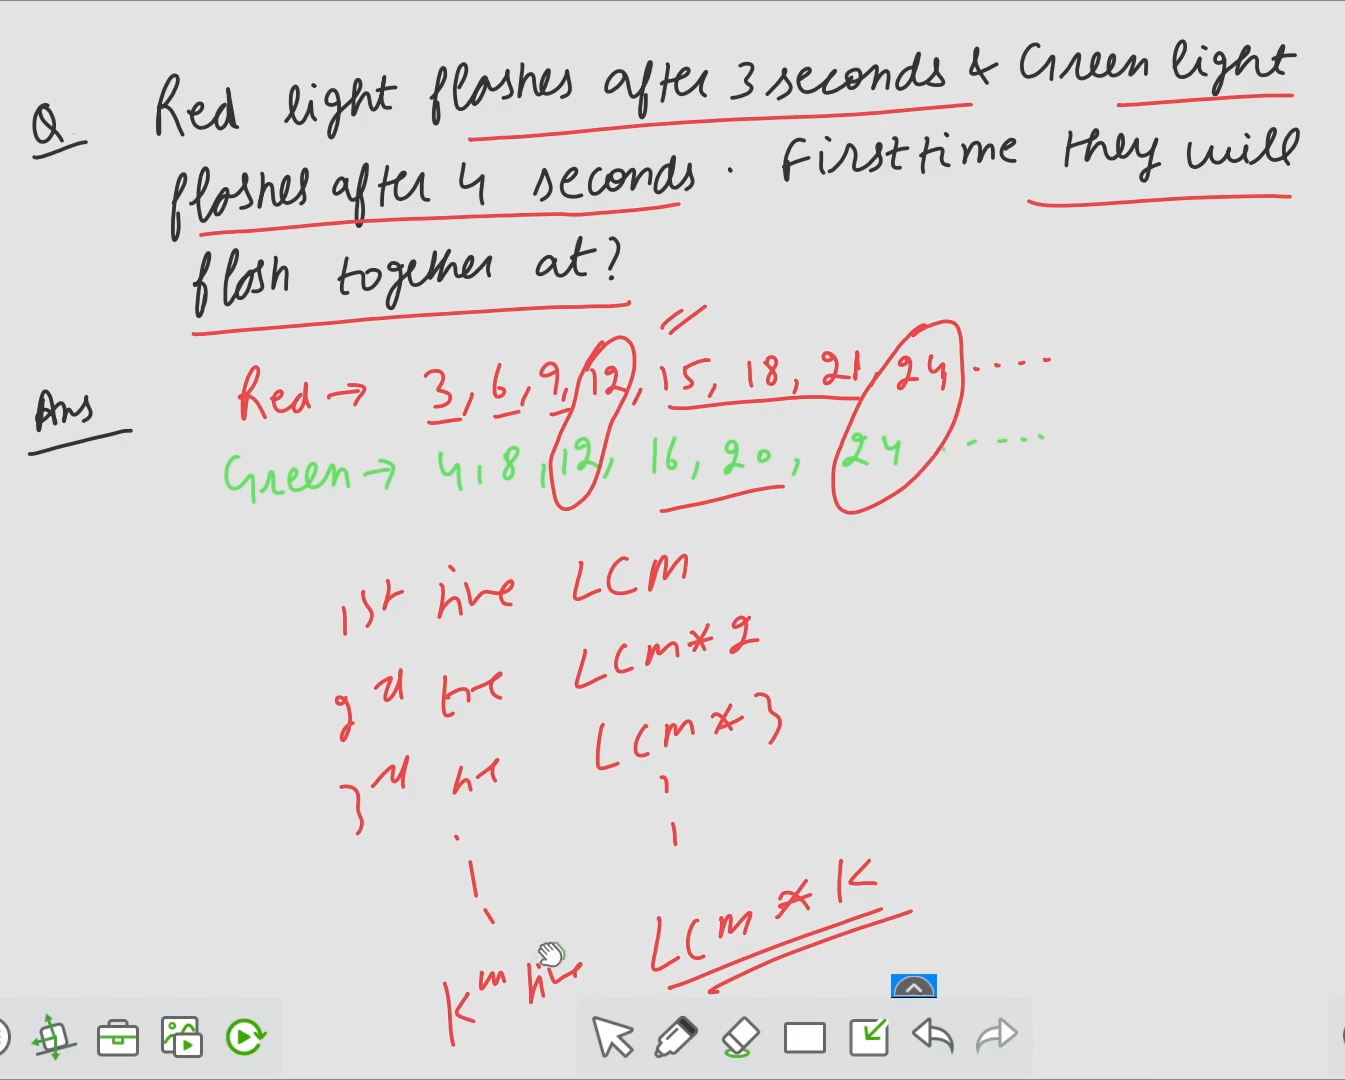 Q. Red light flashes after 3 seconds & Green light
flashes after 4 seconds. First time they will
flash together at?
Ans Red → 3, 6, 9, 12, 15, 18, 21, 24 .....
Green → 4, 8, 12, 16, 20, 24 .....
1st time LCM
2nd time LCM * 2
3rd time LCM * 3
Kth time LCM * K